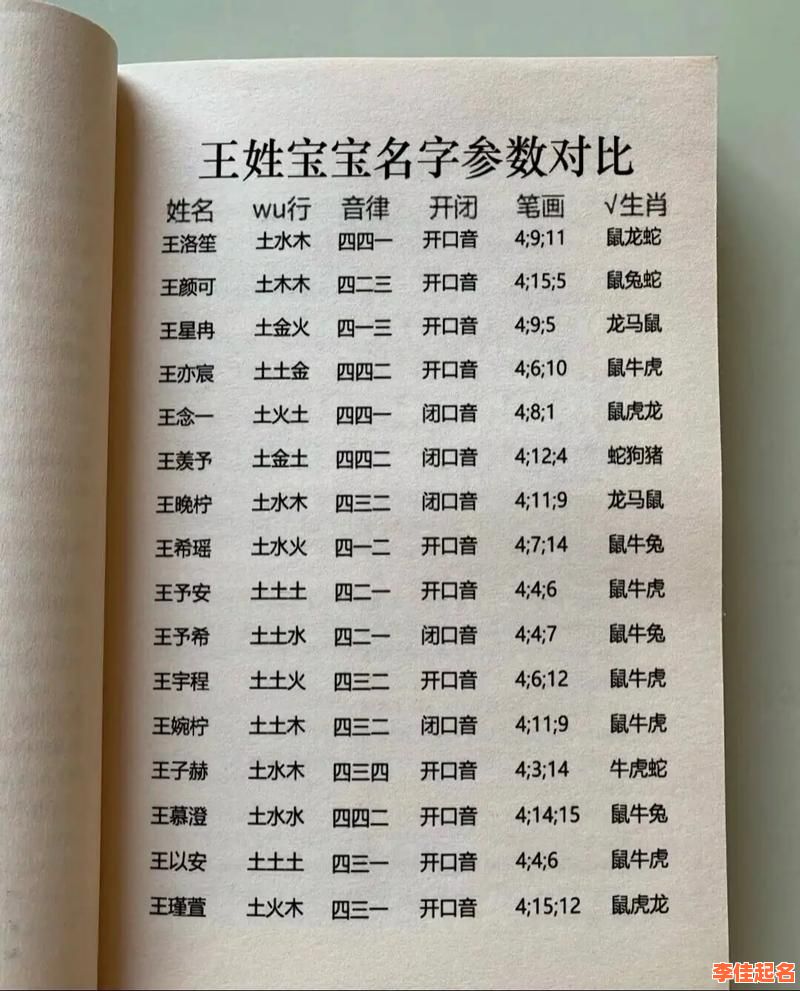 王姓宝宝名字参数对比
姓名 wu行 音律 开闭 笔画 √生肖
王洛笙 土水木 四四一 开口音 4;9;11 鼠龙蛇
王颜可 土木木 四二三 开口音 4;15;5 鼠兔蛇
王星冉 土金火 四一三 开口音 4;9;5 龙马鼠
王亦宸 土土金 四四二 开口音 4;6;10 鼠牛虎
王念一 土火土 四四一 闭口音 4;8;1 鼠虎龙
王羡予 土金土 四四二 闭口音 4;12;4 蛇狗猪
王晚柠 土水木 四三二 闭口音 4;11;9 龙马鼠
王希瑶 土水火 四一二 开口音 4;7;14 鼠牛兔
王予安 土土土 四二一 开口音 4;4;6 鼠牛虎
王予希 土土水 四二一 闭口音 4;4;7 鼠牛兔
王宇程 土土火 四三二 开口音 4;6;12 鼠牛虎
王婉柠 土土木 四三二 闭口音 4;11;9 鼠牛虎
王子赫 土水木 四三四 开口音 4;3;14 牛虎蛇
王慕澄 土水水 四四二 开口音 4;14;15 鼠牛兔
王以安 土土土 四三一 开口音 4;4;6 鼠牛虎
王瑾萱 土火木 四三一 开口音 4;15;12 鼠虎龙
李佳起名